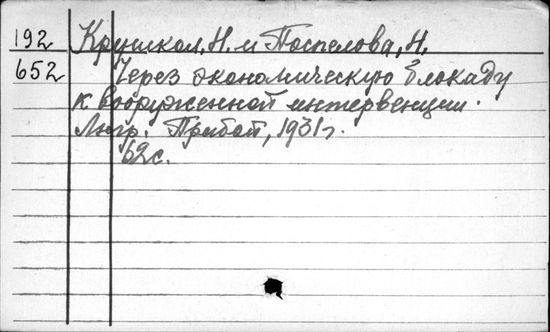 192 Крушкол, Н. и Поспелова, Н.
652 Через экономическую блокаду
к вооруженной интервенции.
Лнгр. Прибой, 1931г.
62с.